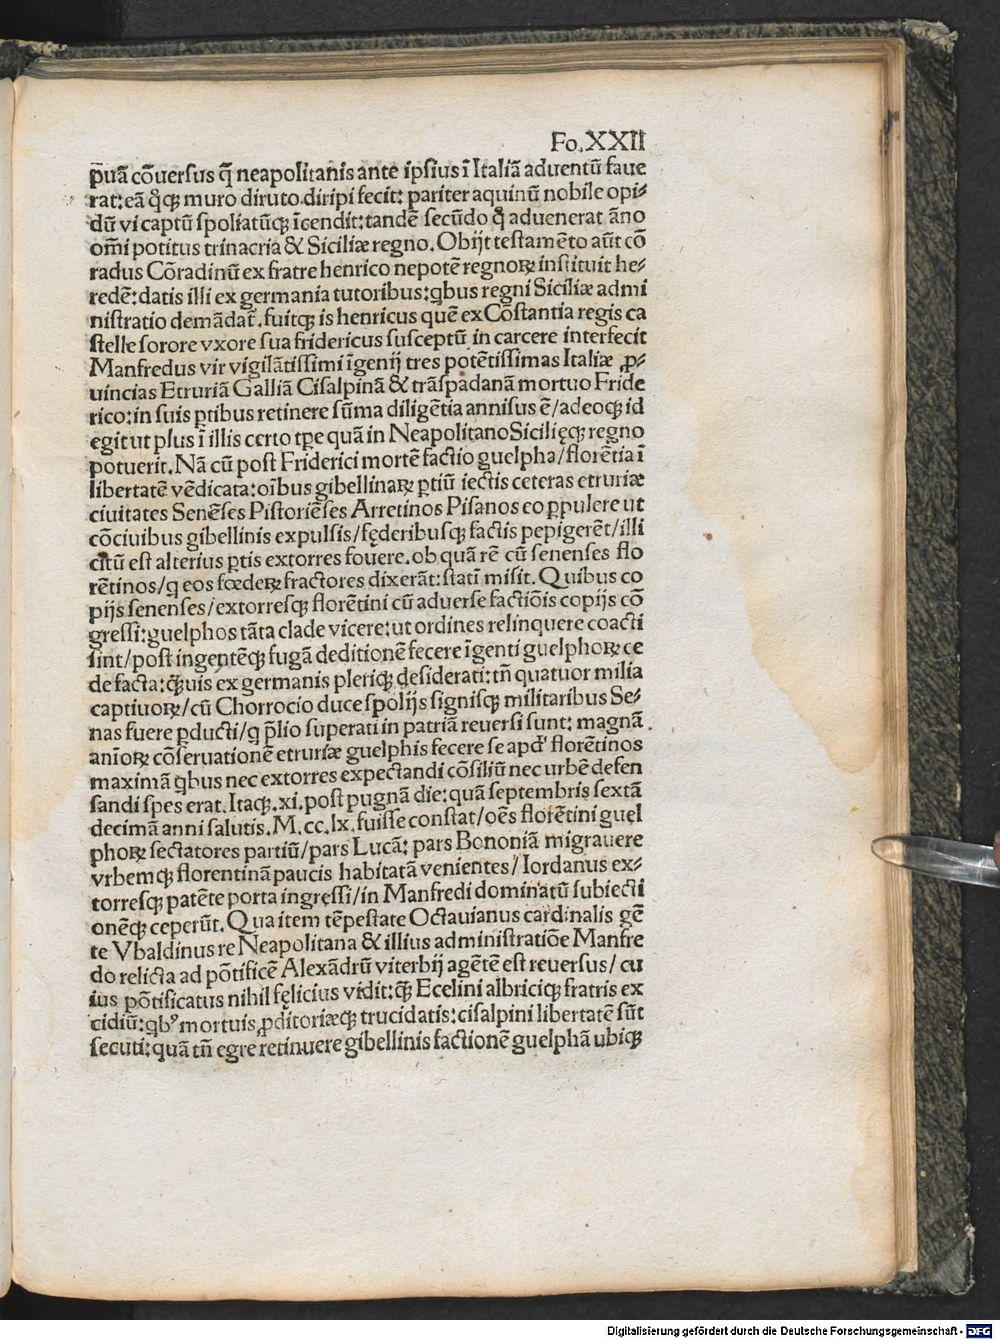 Fo.XXII
p̄uā cōuersus q̄ neapolitanis ante ipsius ī Italiā aduentū faue
rat: eā qͦqꝫ muro diruto diripi fecit: pariter aquinū nobile opi⸗
dū vi captū spoliatūqꝫ īcendit: tandē secūdo qͦ aduenerat āno
om̄i potitus trinacria & Siciliæ regno. Obijt testamēto aūt cō
radus Cōradinū ex fratre henrico nepotē regnoꝝ instituit he⸗
redē: datis illi ex germania tutoribus: qbus regni Siciliæ admi
nistratio demādat̄. fuitqꝫ is henricus quē ex Cōstantia regis ca
stelle sorore vxore sua fridericus susceptū in carcere interfecit
Manfredus vir vigilātissimi īgenij tres potētissimas Italiæ ꝓ⸗
uincias Etruriā Galliā Cisalpinā & trāspadanā mortuo Fride
rico: in suis ꝑtibus retinere sūma diligētia annisus ē/ adeoqꝫ id
egit ut plus ī illis certo tꝑe quā in Neapolitano Sicilięqꝫ regno
potuerit. Nā cū post Friderici mortē factio guelpha/ florētia ī
libertatē vēdicata: oībus gibellinaꝝ ꝑtiū iectis ceteras etruriæ
ciuitates Senēses Pistoriēses Arretinos Pisanos eo ꝑpulere ut
cōciuibus gibellinis expulsis/ fęderibusqꝫ factis pepigerēt/ illi
citū est alterius ꝑtis extorres fouere. ob quā rē cū senenses flo
rētinos/ q eos fœdeꝝ fractores dixerāt: statī misit. Quibus co
pijs senenses/ extorresqꝫ florētini cū aduerse factiōis copijs cō
gressi: guelphos tāta clade vicere: ut ordines relinquere coacti
sint/ post ingentēqꝫ fugā deditionē fecere īgenti guelphoꝝ ce
de facta: qͣuis ex germanis pleriqꝫ desiderati: tn̄ quatuor milia
captiuoꝝ/ cū Chorrocio duce spolijs signisqꝫ militaribus Se⸗
nas fuere ꝑducti/ q p̄lio superati in patriā reuersi sunt: magnā
anīoꝝ cōseruationē etruriæ guelphis fecere se apd' florētinos
maximā qbus nec extorres expectandi cōsiliū nec urbē defen
sandi spes erat. Itaqꝫ .xi. post pugnā die: quā septembris sextā
decimā anni salutis. M.cc.lx. fuisse constat/ oēs florētini guel
phoꝝ sectatores partiū/ pars Lucā: pars Bononiā migrauere
vrbemqꝫ florentinā paucis habitatā venientes/ Iordanus ex⸗
torresqꝫ patēte porta ingressi/ in Manfredi dominatū subiecti
onēqꝫ ceperūt. Qua item tēpestate Octauianus cardinalis gē
te Vbaldinus re Neapolitana & illius administratiōe Manfre
do relicta ad pōtificē Alexādrū viterbij agētē est reuersus/ cu
ius pōtificatus nihil fęlicius vidit: qͣ Ecelini albriciqꝫ fratris ex
cidiū: qbꝰ mortuis ꝓditoriæqꝫ trucidatis: cisalpini libertatē sūt
secuti: quā tn̄ egre retinuere gibellinis factionē guelphā ubiqꝫ
Digitalisierung gefördert durch die Deutsche Forschungsgemeinschaft - DFG